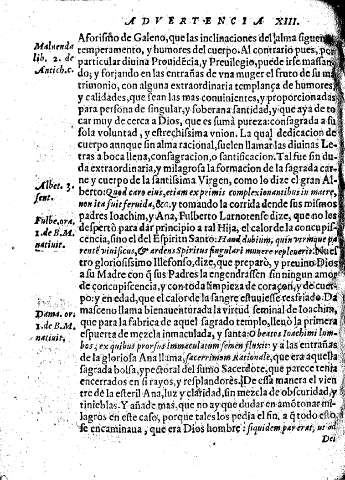 ADVERTENCIA XIII.
Aforismo de Galeno, que las inclinaciones del alma siguen el
Maluenda
temperamento, y humores del cuerpo. Al contrario pues, por
lib. 2. de
particular diuina Prouidẽcia, y Preuilegio, puede irse massan-
Antich. c.
do; y forjando en las entrañas de vna muger el fruto de su ma-
trimonio, con alguna extraordinaria templança de humores
y calidades, que sean las mas conuinientes, y proporcionadas
para persona de singular, y soberana santidad, y que aya de to
car muy de cerca a Dios, que es suma pureza: consagrada a su
sola voluntad, y estrechissima vnion. La qual dedicacion de
cuerpo aunque sin alma racional, suelen llamar las diuinas Le-
tras a boca llena, consagracion, o santificacion. Tal fue sin du-
da extraordinaria, y milagrosa la formacion de la sagrada car-
ne y cuerpo de la santissima Virgen, como lo dize el gran Al-
Albet. 3.
berto: Quod caro eius, etiam ex primis complexionantibus in matre,
sent.
non ita fuit feruida, &c. y tomando la corrida dende sus mismos
Fulbe. ora.
padres Ioachim, y Ana, Fulberto Carnotense dize, que no los
1. de B. M.
despertò para dar principio a tal Hija, el calor de la concupis-
natiuit.
cencia, sino el del Espiritu Santo: Haud dubium, quin vtrunque pa
rentẽ viuificus, & ardens Spiritus singulari munere repleuerit. Nuest
tro gloriosissimo Ilefonso, dize, que preparò, y preuino Dios
a su Madre con q̃ sus Padres la engendrassen sin ningun amor
de concupiscencia, y con toda limpieza de coraçon, y de cuer-
po: y en edad, que el calor de la sangre estuuiesse resfriado. Da
Dama. or.
masceno llama bienauenturada la virtud seminal de Ioachim,
1. de B. M.
que para la fabrica de aquel sagrado templo, lleuò la primera
natiuit.
espuerta de mezcla inmaculada, y santa: O beatos Ioachimi lum-
bos, ex quibus prorsus immaculatum semen fluxit: y a las entrañas
de la gloriosa Ana llama, sacerrimum Rationale, que era aquella
sagrada bolsa, y pectoral del sumo Sacerdote, que parece tenia
encerrados en si rayos, y resplandores. De essa manera el vien
tre de la esteril Ana, luz y claridad, sin mezcla de obscuridad, y
tinieblas. Y añade mas, que no ay que dudar en amõtonar mi-
lagros en este caso, porque tales los pedia el fin, a q̃ todo esto
se encaminaua, que era Dios hombre: siquidem par erat, ut ad
Dei